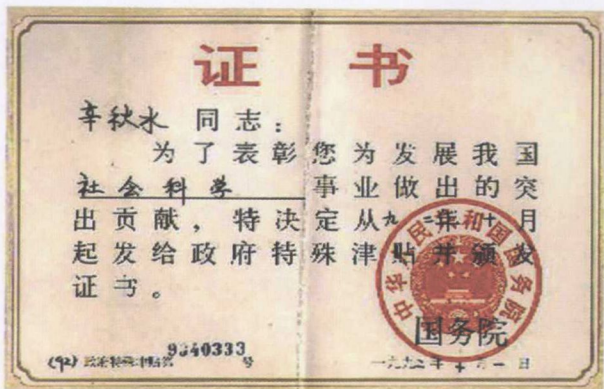 证书
辛秋水 同志：
为了表彰您为发展我国
社会科学 事业做出的突
出贡献，特决定从九二年十月
起发给政府特殊津贴并颁发
证书。
中华人民共和国国务院
国务院
(92) 政府特殊津贴第 9340333 号
一九九二年十月一日